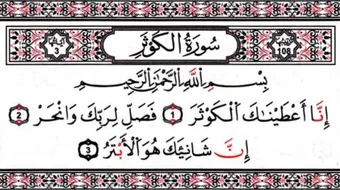 سُورَةُ الكَوْثَرِ
بِسْمِ اللَّهِ الرَّحْمَٰنِ الرَّحِيمِ
إِنَّا أَعْطَيْنَاكَ الْكَوْثَرَ 1 فَصَلِّ لِرَبِّكَ وَانْحَرْ 2
إِنَّ شَانِئَكَ هُوَ الْأَبْتَرُ 3